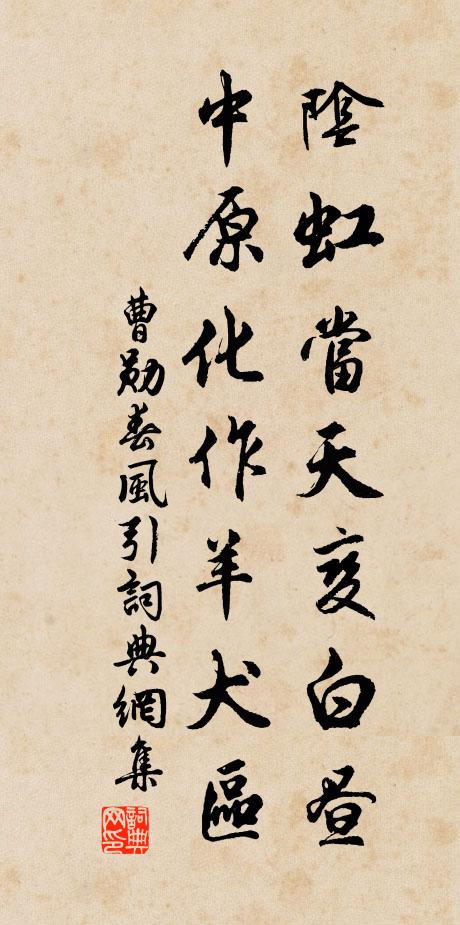 陰虹當天變白晝
中原化作羊犬區
曹勛春風引詞典網集
詞典網印